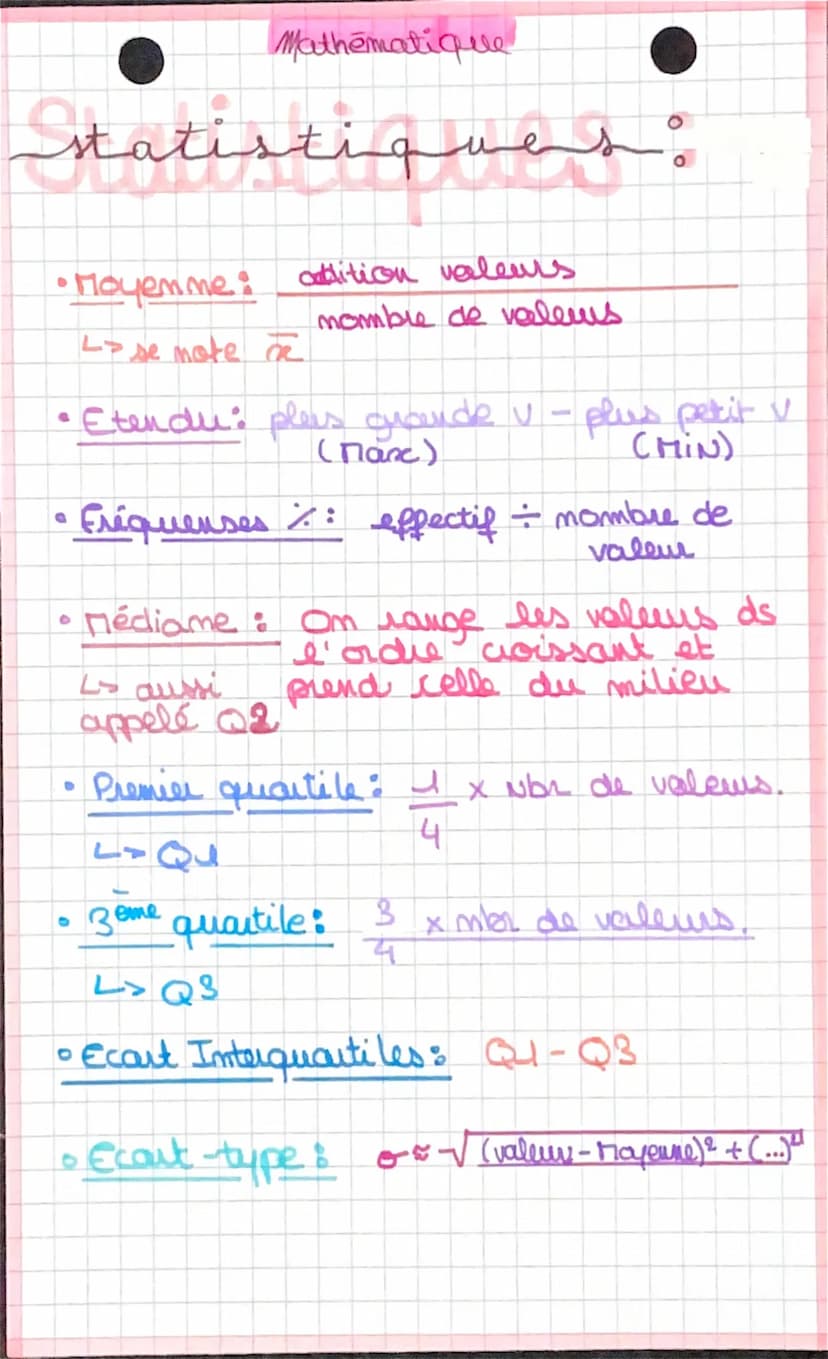 Mathématique
Statistiques :
• Moyenne : addition valeurs
nombre de valeurs
↳ se note x̄
• Etendu : plus grande v - plus petit v
(Max) (MIN)
• Fréquenses % : effectif ÷ nombre de
valeur
• Médiane : On range les valeurs ds
l'ordre croissant et
↳ aussi prend celle du milieu
appelé Q2
• Premier quartile : 1/4 x Nbr de valeurs.
↳ Q1
• 3ème quartile : 3/4 x nbr de valeurs.
↳ Q3
• Ecart Interquartiles : Q1 - Q3
• Ecart-type : σ ≈ √(valeur - Moyenne)² + (...)²